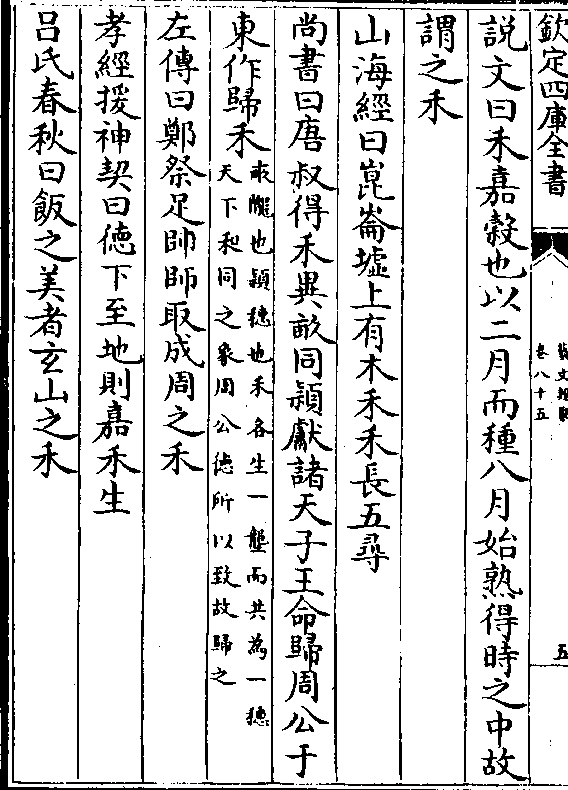 欽定四庫全書
藝文類聚
卷八十五
五
說文曰禾嘉穀也以二月而種八月始熟得時之中故
謂之禾
山海經曰崑崙墟上有木禾禾長五尋
尚書曰唐叔得禾異畝同穎獻諸天子王命歸周公于
東作歸禾
畝壠也穎穗也禾各生一壟而共為一穗
天下和同之象周公德所以致故歸之
左傳曰鄭祭足帥師取成周之禾
孝經援神契曰德下至地則嘉禾生
吕氏春秋曰飯之美者玄山之禾